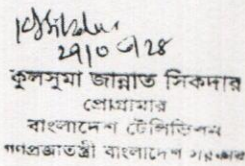 ২৭/০৩/২৪
কুলসুমা জান্নাত সিকদার
প্রোগ্রামার
বাংলাদেশ টেলিভিশন
গণপ্রজাতন্ত্রী বাংলাদেশ সরকার